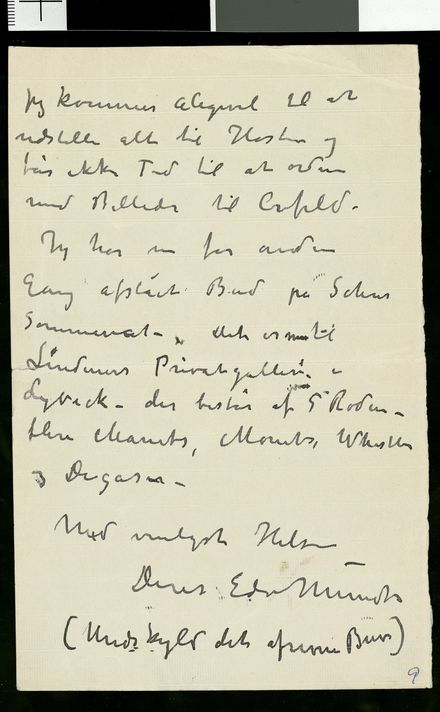 Jeg kommer aligevel til at
udstille alt til Høsten og
får ikke Tid til at ordne
med Billeder til Crefeld.
Jeg har nu for anden
Gang afslået Bud på
Sommernat – det er til
Lindeners Privatgalleri i
Lybæck – der består af 5 Rodin –
flere Manets, Monets, Whistler
og Degaser –
Med venligst Hilsen
Deres Edv Munch
(Undskyld det afrevne Brev)
9